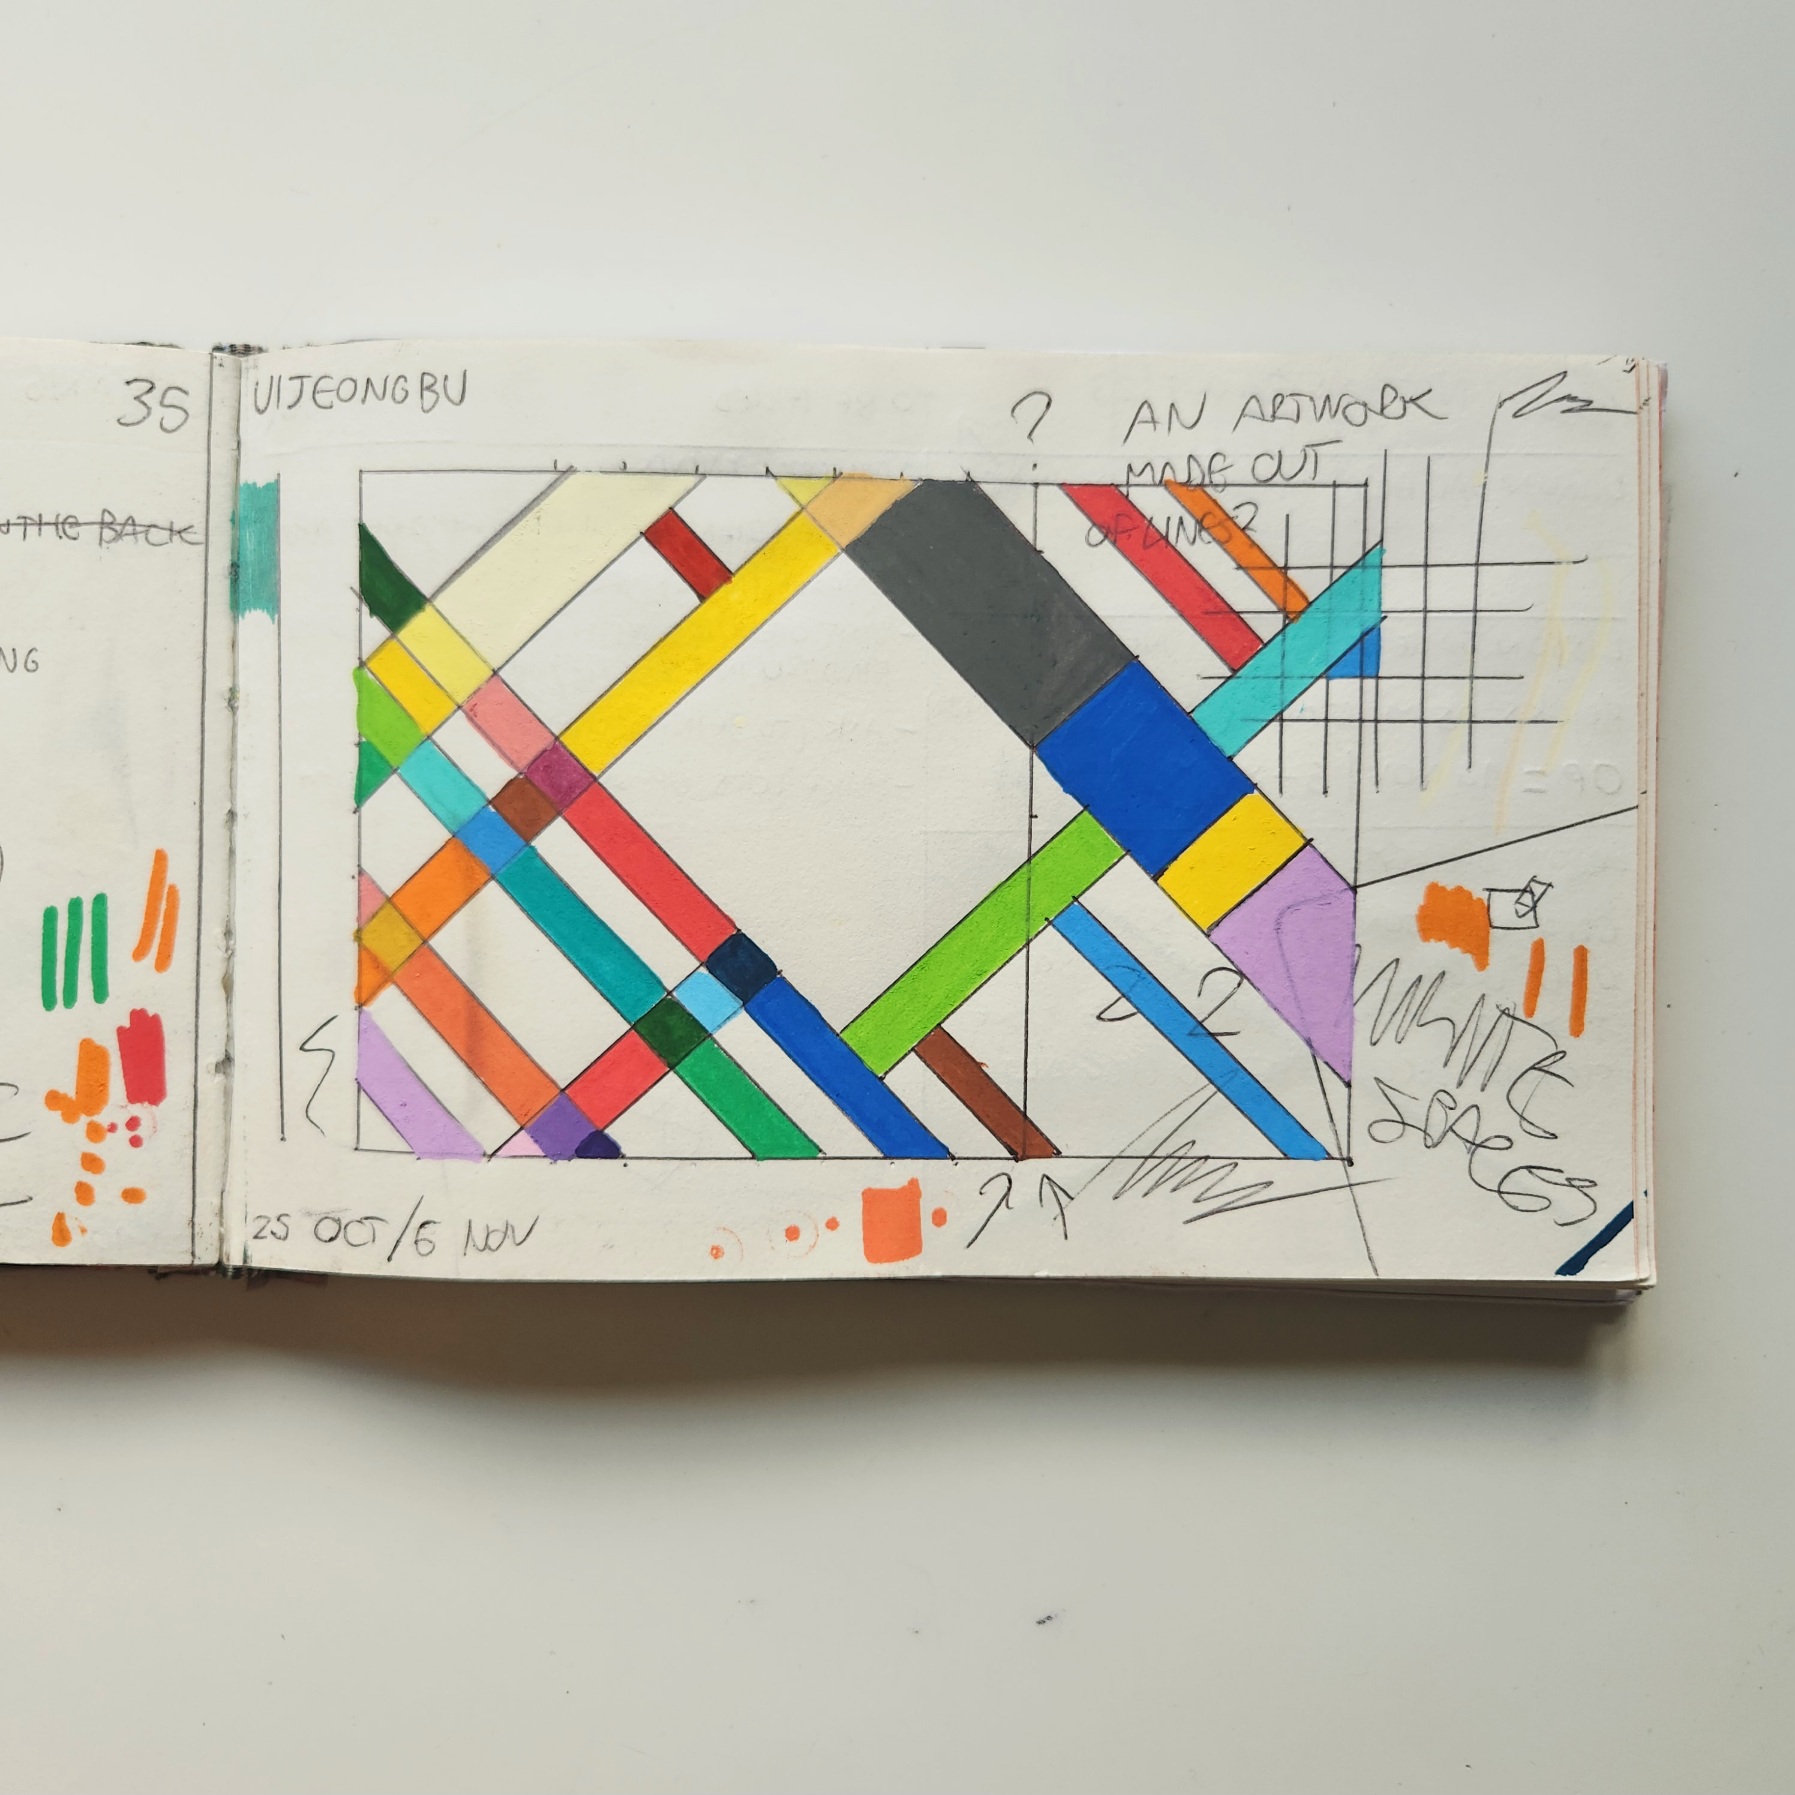 35
THE BACK
NG
UIJEONGBU
?
AN ARTWORK
MADE OUT
OF LINES?
2 2
WHITE
SPACES
25 OCT/6 NOV